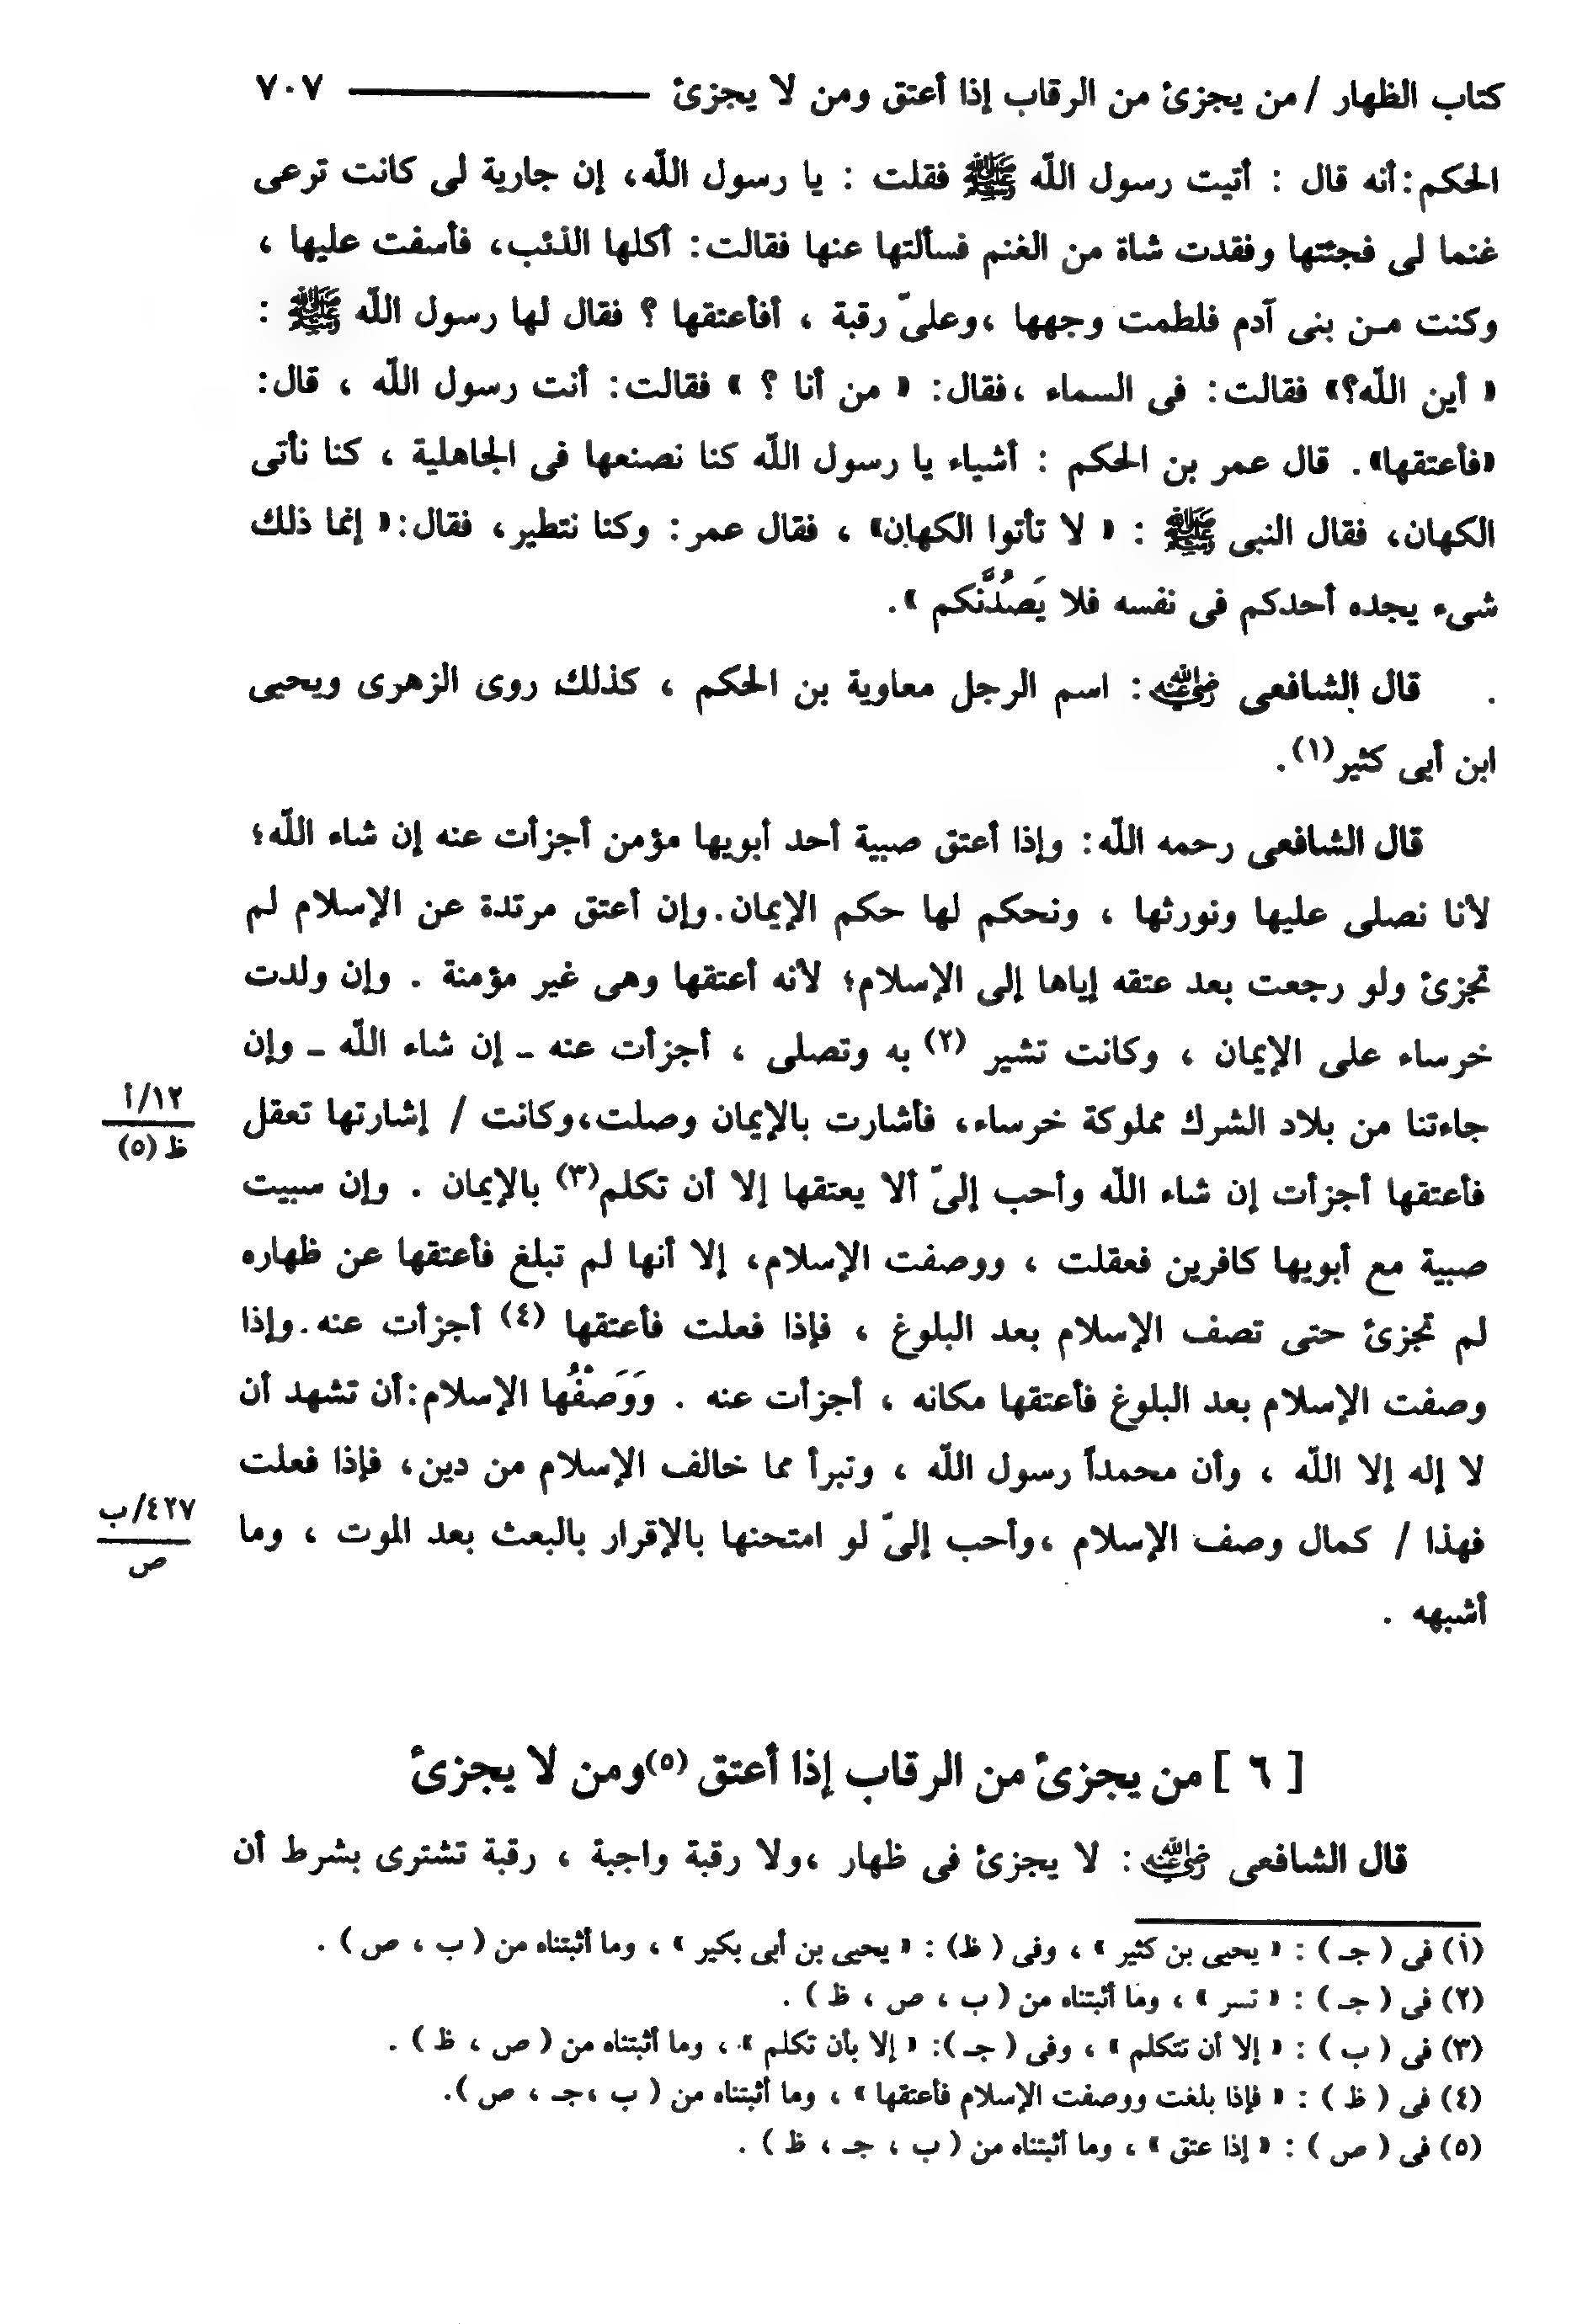 كتاب الظهار / من يجزئ من الرقاب إذا أعتق ومن لا يجزئ ٧٠٧
الحكم: أنه قال : أتيت رسول اللّه ﷺ فقلت : يا رسول اللّه، إن جارية لى كانت ترعى
غنما لى فجئتها وفقدت شاة من الغنم فسألتها عنها فقالت: أكلها الذئب، فأسفت عليها ،
وكنت مـن بنى آدم فلطمت وجهها ،وعلىّ رقبة ، أفأعتقها ؟ فقال لها رسول اللّه ﷺ :
« أين اللّه؟» فقالت: فى السماء ،فقال: « من أنا ؟ » فقالت: أنت رسول اللّه ، قال:
«فأعتقها». قال عمر بن الحكم : أشياء يا رسول اللّه كنا نصنعها فى الجاهلية ، كنا نأتى
الكهان، فقال النبى ﷺ : « لا تأتوا الكهان» ، فقال عمر: وكنا نتطير، فقال:« إنما ذلك
شىء يجده أحدكم فى نفسه فلا يَصُدَّنَّكم ».
قال الشافعى رضي الله عنه : اسم الرجل معاوية بن الحكم ، كذلك روى الزهرى ويحيى
ابن أبى كثير(١).
قال الشافعى رحمه اللّه: وإذا أعتق صبية أحد أبويها مؤمن أجزأت عنه إن شاء اللّه؛
لأنا نصلى عليها ونورثها ، ونحكم لها حكم الإيمان.وإن أعتق مرتدة عن الإسلام لم
تجزئ ولو رجعت بعد عتقه إياها إلى الإسلام؛ لأنه أعتقها وهى غير مؤمنة . وإن ولدت
خرساء على الإيمان ، وكانت تشير (٢) به وتصلى ، أجزأت عنه ـ إن شاء اللّه ـ وإن
جاءتنا من بلاد الشرك مملوكة خرساء، فأشارت بالإيمان وصلت،وكانت / إشارتها تعقل
١٢/أ
ظ (٥)
فأعتقها أجزأت إن شاء اللّه وأحب إلىّ ألا يعتقها إلا أن تكلم(٣) بالإيمان . وإن سبيت
صبية مع أبويها كافرين فعقلت ، ووصفت الإسلام، إلا أنها لم تبلغ فأعتقها عن ظهاره
لم تجزئ حتى تصف الإسلام بعد البلوغ ، فإذا فعلت فأعتقها (٤) أجزأت عنه.وإذا
وصفت الإسلام بعد البلوغ فأعتقها مكانه ، أجزأت عنه . وَوَصْفُها الإسلام:أن تشهد أن
لا إله إلا اللّه ، وأن محمداً رسول اللّه ، وتبرأ مما خالف الإسلام من دين، فإذا فعلت
فهذا / كمال وصف الإسلام ،وأحب إلىّ لو امتحنها بالإقرار بالبعث بعد الموت ، وما
٤٢٧/ب
ص
أشبهه .
[ ٦ ] من يجزئ من الرقاب إذا أعتق (٥)ومن لا يجزئ
قال الشافعى رضي الله عنه : لا يجزئ فى ظهار ،ولا رقبة واجبة ، رقبة تشترى بشرط أن
(١) فى ( جـ ) : « يحيى بن كثير » ، وفى ( ظ) : « يحيى بن أبى بكير » ، وما أثبتناه من ( ب ، ص ) .
(٢) فى ( جـ ) : « تسر » ، وما أثبتناه من ( ب ، ص ، ظ ) .
(٣) فى ( ب ) : « إلا أن تتكلم » ، وفى ( جـ ): « إلا بأن تكلم » ، وما أثبتناه من ( ص ، ظ ) .
(٤) فى ( ظ ) : « فإذا بلغت ووصفت الإسلام فأعتقها » ، وما أثبتناه من ( ب ،جـ ، ص ).
(٥) فى ( ص ) : « إذا عتق » ، وما أثبتناه من ( ب ، جـ ، ظ ) .